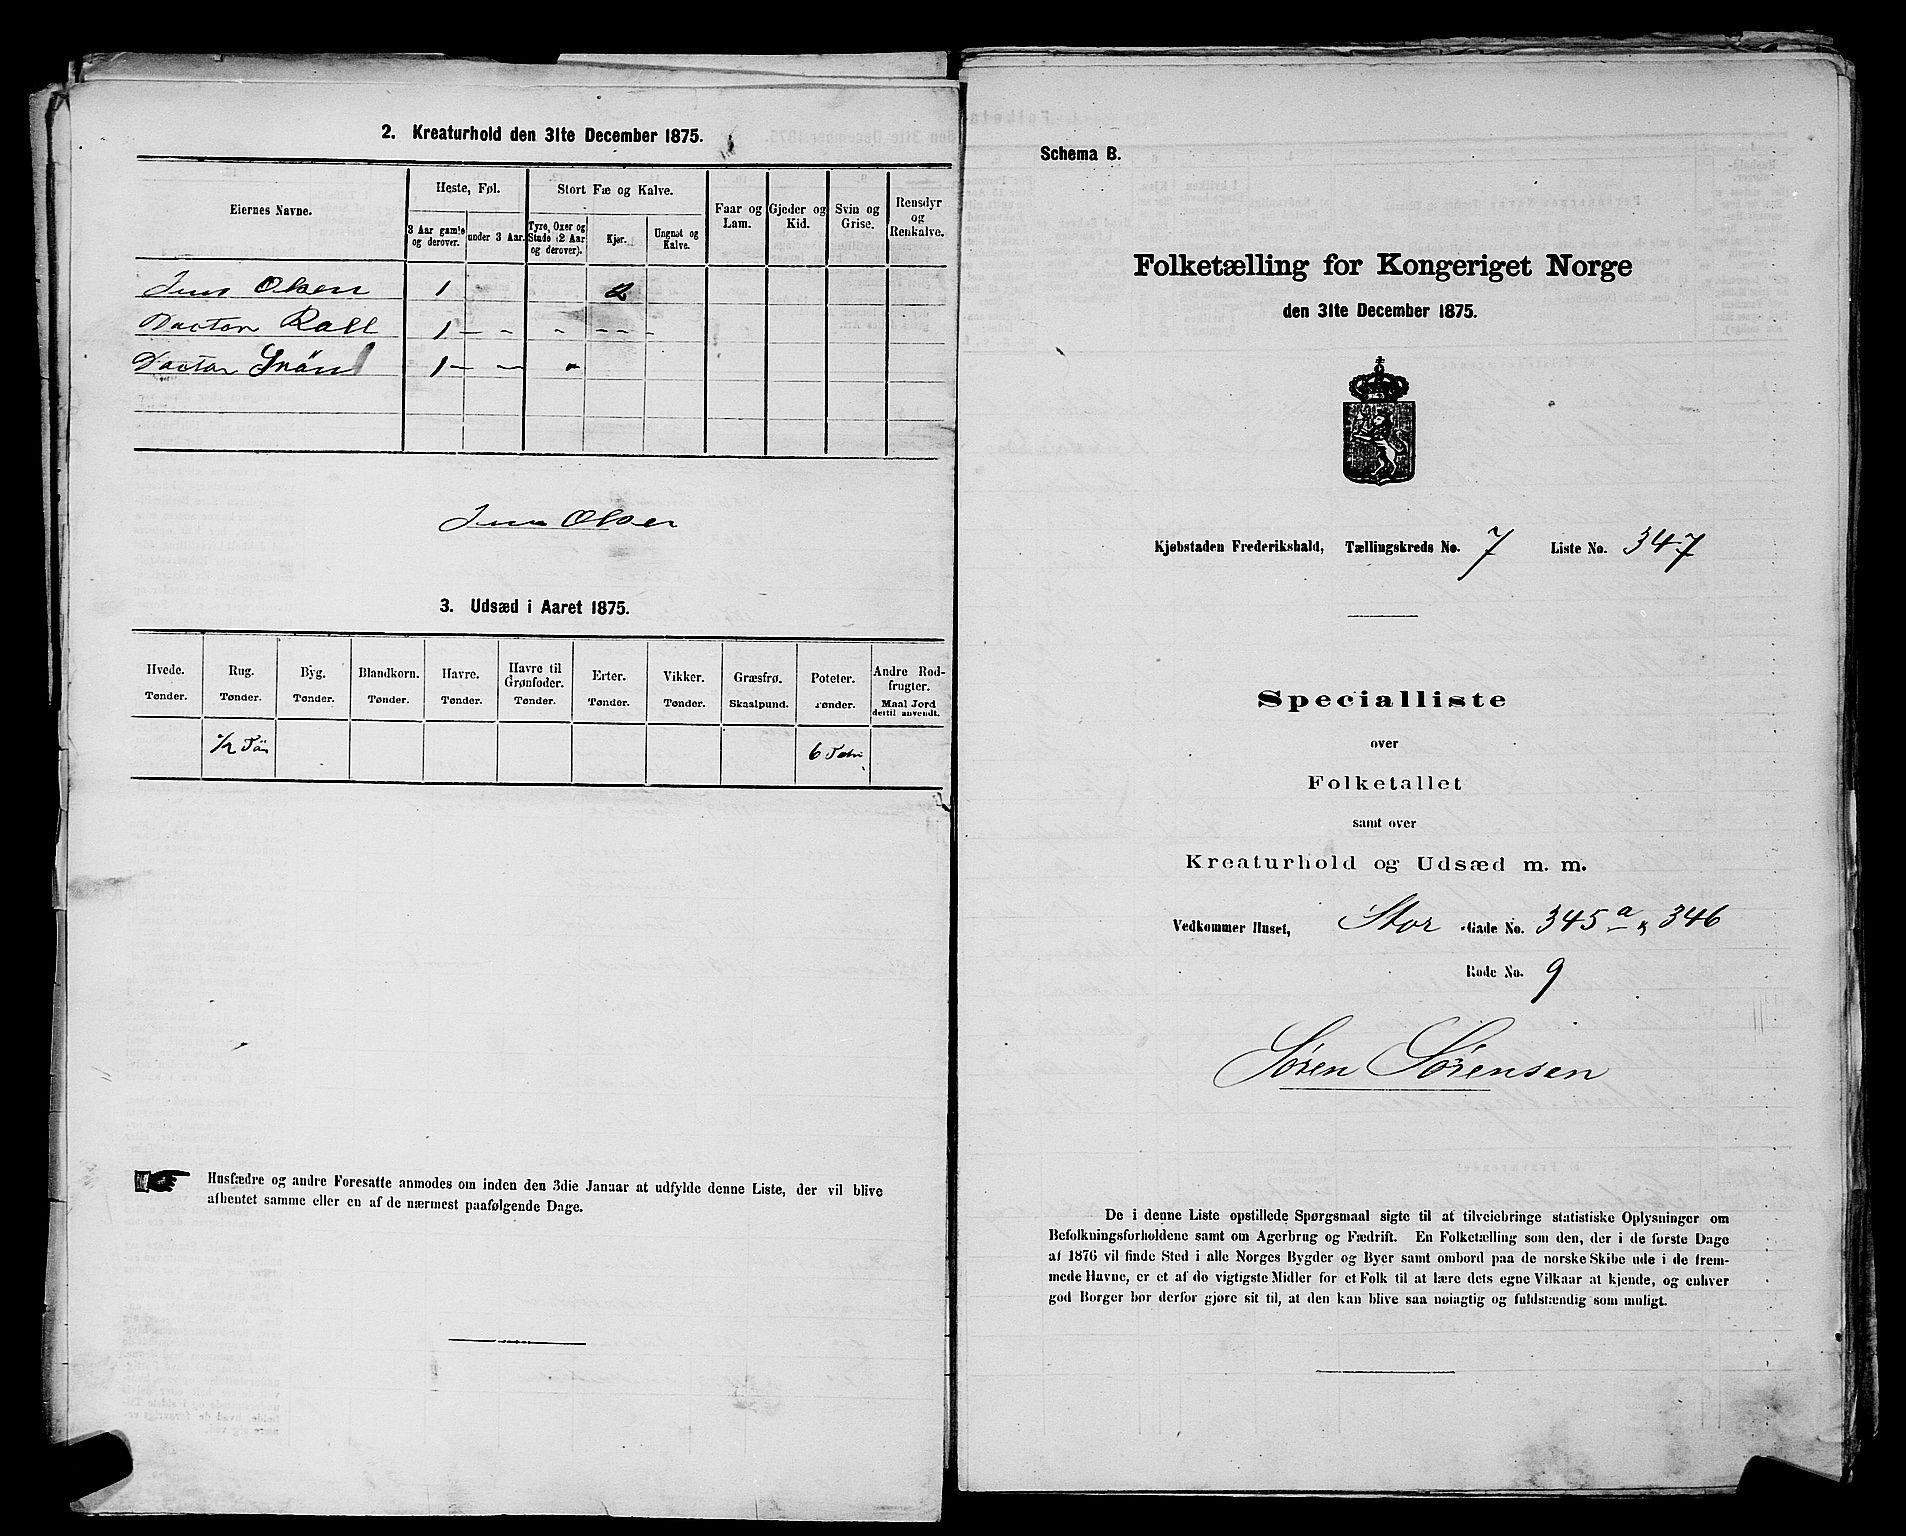 2. Kreaturhold den 31te December 1875.
Eiernes Navne.
Heste, Føl.
Stort Fæ og Kalve.
Faar og Lam.
Gjeder og Kid.
Svin og Grise.
Rensdyr og Renkalve.
3 Aar gamle og derover.
under 3 Aar.
Tyre, Oxer og Stude (2 Aar og derover).
Kjør.
Ungnøt og Kalve.
Jens Olsen 1 2
Doctor Roll 1 - - - - - -
Doctor 1 - - -
Jens Olsen
3. Udsæd i Aaret 1875.
Hvede. Tønder.
Rug. Tønder.
Byg. Tønder.
Blandkorn. Tønder.
Havre. Tønder.
Havre til Grønfoder. Tønder.
Erter. Tønder.
Vikker. Tønder.
Græsfrø. Skaalpund.
Poteter. Tønder.
Andre Rodfrugter. Maal Jord dertil anvendt.
1/2 Tøn 6
Husfædre og andre Foresatte anmodes om inden den 3die Januar at udfylde denne Liste, der vil blive
afhentet samme eller en af de nærmest paafølgende Dage.
Schema B.
Folketælling for Kongeriget Norge
den 31te December 1875.
Kjøbstaden Frederikshald, Tællingskreds No. 7 Liste No. 347
Specialliste
over
Folketallet
samt over
Kreaturhold og Udsæd m. m.
Vedkommer Huset, Stor -Gade No. 345 a & 346
Rode No. 9
Søren Sørensen
De i denne Liste opstillede Spørgsmaal sigte til at tilveiebringe statistiske Oplysninger om
Befolkningsforholdene samt om Agerbrug og Fædrift. En Folketælling som den, der i de første Dage
af 1876 vil finde Sted i alle Norges Bygder og Byer samt ombord paa de norske Skibe ude i de frem-
mede Havne, er et af de vigtigste Midler for et Folk til at lære dets egne Vilkaar at kjende, og enhver
god Borger bør derfor gjøre sit til, at den kan blive saa nøiagtig og fuldstændig som muligt.